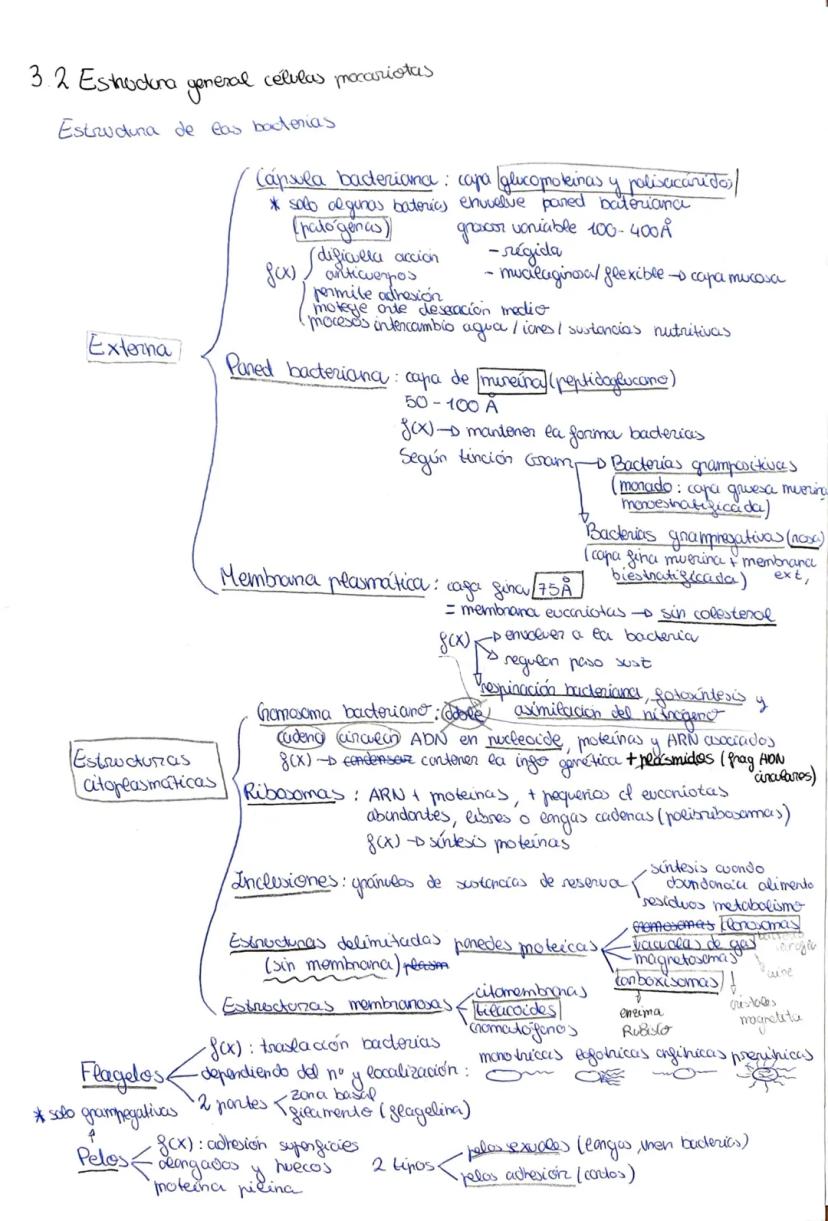 3.2 Estructura general células procariotas
Estructura de las bacterias
Cápsula bacteriana : capa glucoproteínas y polisacáridos
* solo algunas baterias envuelve pared bateriana
(patógenas) grosor variable 100-400Å
f(x) dificulta acción - rígida
anticuerpos - mucilaginosa/ flexible → capa mucosa
permite adhesión
protege ante desecación medio
procesos intercambio agua / iones / sustancias nutritivas
Externa
Pared bacteriana : capa de mureína (peptidoglucano)
50 - 100 Å
f(x) → mantener la forma bacterias
Según tinción Gram → Bacterias grampositivas
(morado : capa gruesa mureina
monoestratificada)
Bacterias gramnegativas (rosa)
(capa fina muerina + membrana
biestratificada) ext,
Membrana plasmática : capa fina 75Å
= membrana eucariotas → sin colesterol
f(x) → envolver a la bacteria
→ regulan paso sust
respiración bacteriana, fotosíntesis y
asimilación del nitrógeno
Cromosoma bacteriano : doble
cadena circular ADN en nucleoide, proteínas y ARN asociados
f(x) → condensar contener la info genética + plásmidos (frag ADN
circulares)
Estructuras
citoplasmáticas
Ribosomas : ARN + proteinas, + pequeños cf eucariotas
abundantes, libres o largas cadenas (polirribosomas)
f(x) → síntesis proteínas
Inclusiones : gránulos de sustancias de reserva síntesis cuando
abundancia alimento
residuos metabolismo
Estructuras delimitadas paredes proteicas cromosomas clorosomas
(sin membrana) plasm vacuolas de gas
magnetosomas aire
carboxisomas
enzima cristales
Rubisco magnetita
Estructuras membranosas citomembranas
tilacoides
cromatóforos
Flagelos f(x) : traslación bacterias
dependiendo del nº y localización : monotricas lofotricas anfitricas peritricas
2 partes zona basal
filamento (flagelina)
* solo gramnegativas
Pelos f(x) : adhesión superficies
alargados y huecos
proteína pilina
2 tipos pelos sexuales (largas, unen bacterias)
pelos adhesión (cortos)